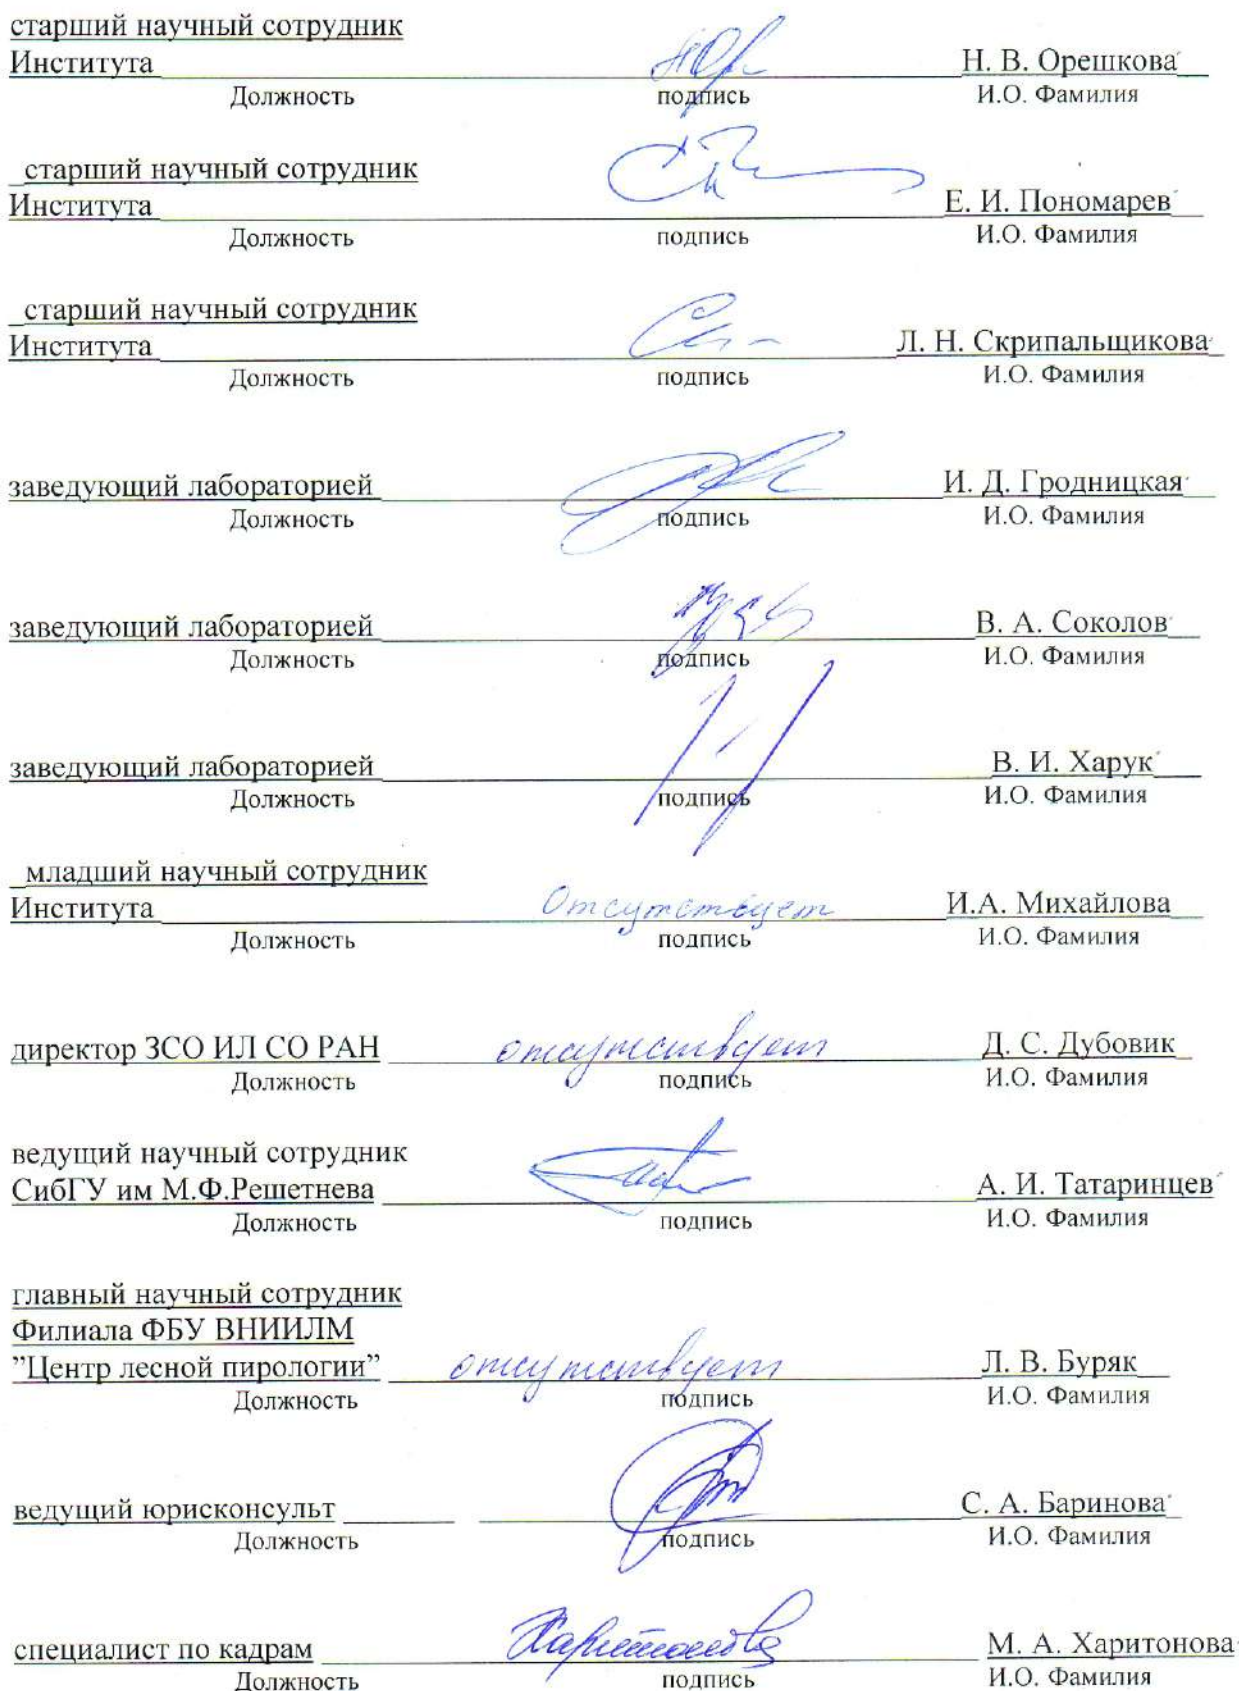 старший научный сотрудник
Института Н. В. Орешкова
Должность подпись И.О. Фамилия
старший научный сотрудник
Института Е. И. Пономарев
Должность подпись И.О. Фамилия
старший научный сотрудник
Института Л. Н. Скрипальщикова
Должность подпись И.О. Фамилия
заведующий лабораторией И. Д. Гродницкая
Должность подпись И.О. Фамилия
заведующий лабораторией В. А. Соколов
Должность подпись И.О. Фамилия
заведующий лабораторией В. И. Харук
Должность подпись И.О. Фамилия
младший научный сотрудник
Института Отсутствует И.А. Михайлова
Должность подпись И.О. Фамилия
директор ЗСО ИЛ СО РАН отсутствует Д. С. Дубовик
Должность подпись И.О. Фамилия
ведущий научный сотрудник
СибГУ им М.Ф.Решетнева А. И. Татаринцев
Должность подпись И.О. Фамилия
главный научный сотрудник
Филиала ФБУ ВНИИЛМ
”Центр лесной пирологии” отсутствует Л. В. Буряк
Должность подпись И.О. Фамилия
ведущий юрисконсульт С. А. Баринова
Должность подпись И.О. Фамилия
специалист по кадрам Харитонова М. А. Харитонова
Должность подпись И.О. Фамилия